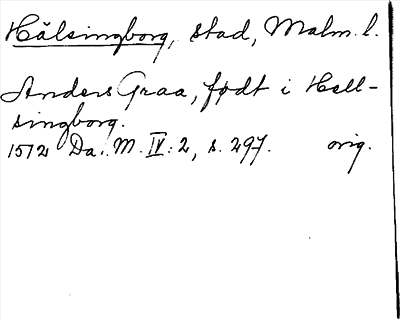 Hälsingborg, stad, Malm. l.
Anders Graa, født i Hell-
singborg.
1572 Da. M. IV: 2, s. 297. orig.